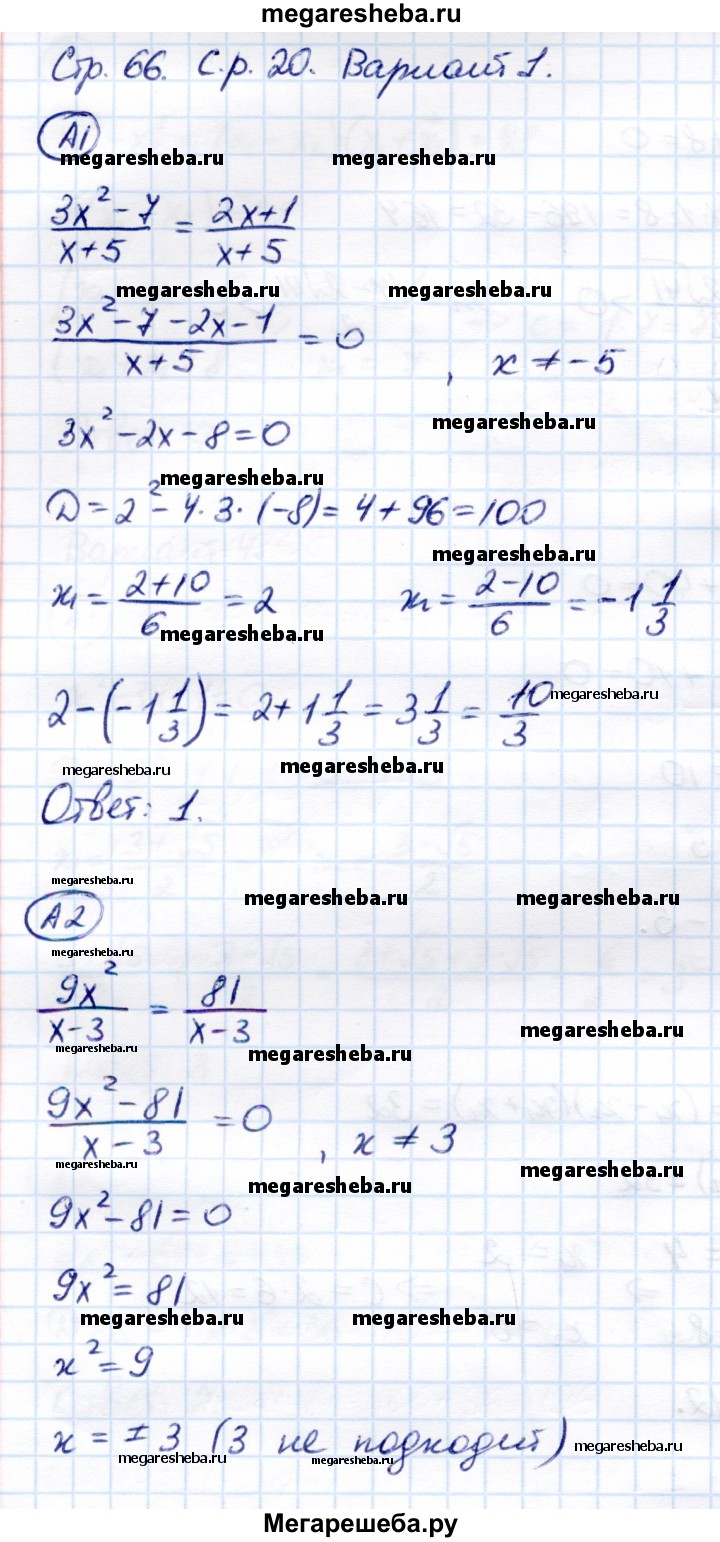 megaresheba.ru
Стр. 66. С.р. 20. Вариант 1.
А1
megaresheba.ru megaresheba.ru
(3x² - 7)/(x + 5) = (2x + 1)/(x + 5)
megaresheba.ru megaresheba.ru
(3x² - 7 - 2x - 1)/(x + 5) = 0, x ≠ -5
megaresheba.ru
3x² - 2x - 8 = 0
megaresheba.ru
D = 2² - 4 · 3 · (-8) = 4 + 96 = 100
megaresheba.ru
x₁ = (2 + 10)/6 = 2 x₁ = (2 - 10)/6 = -1 1/3
megaresheba.ru
2 - (-1 1/3) = 2 + 1 1/3 = 3 1/3 = 10/3
megaresheba.ru
megaresheba.ru megaresheba.ru
Ответ: 1.
megaresheba.ru
megaresheba.ru megaresheba.ru
А2
megaresheba.ru
9x²/(x - 3) = 81/(x - 3)
megaresheba.ru
megaresheba.ru megaresheba.ru
(9x² - 81)/(x - 3) = 0, x ≠ 3
megaresheba.ru megaresheba.ru
megaresheba.ru
9x² - 81 = 0
9x² = 81
megaresheba.ru megaresheba.ru
x² = 9
x = ± 3 (3 не подходит)
megaresheba.ru megaresheba.ru megaresheba.ru
Мегарешеба.ру